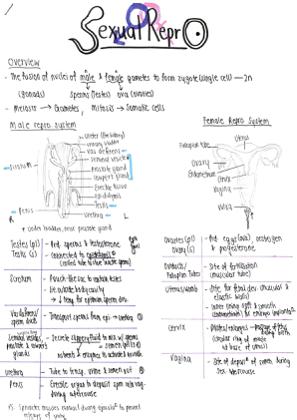 Sexual Repro
Overview
- The fusion of nuclei of male & female gametes to form zygote (single cell) — 2n
(gonads) sperms (testes) ova (ovaries)
- Meiosis → Gametes, Mitosis → Somatic cells
Male repro system
Ureter (to kidney)
urinary bladder
vas deferens
seminal vesicle
Prostate gland
Cowper's gland
Erectile tissue
epididymis
Testis
Urethra
Scrotum
Penis
R
L
* under bladder, near prostate gland
Testes (pl)
Testis (s)
- Prod. sperms & testosterone
- connected to epididymis
Scrotum
- Pouch-like sac to contain testes
- lie outside body cavity
↳ temp for optimum sperm dev.
Vas deferens/
sperm ducts
- Transport sperms from epi → urethra
Seminal vesicles,
prostate & Cowper's
glands
- Secrete slippery fluid to mix w/ sperms
→ semen
w/ nutrients & enzymes to activate & nourish
Urethra
- Tube to transp. urine & semen out
Penis
- Erectile organ to deposit spm into vag.
during intercourse
PS: Sphincter muscles
Female Repro System
Uterus
Fallopian tube
Ovary
Endometrium
Cervix
Vagina
Vulva
Ovaries (pl)
Ovary (s)
- Prod. eggs (ova), oestrogen &
progesterone
Oviducts/
Fallopian Tubes
- Site of fertilisation
(muscular tube)
Uterus/womb
- Site for fetal dev (muscular &
elastic walls)
Cervix
(circular ring of muscle
at base of uterus)
Vagina
- Site of deposit of semen during
sex. intercourse